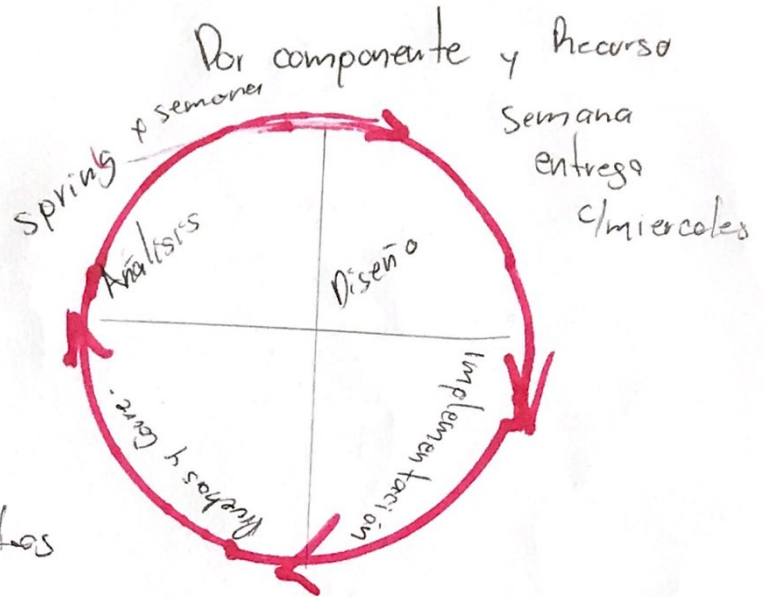 Por componente y Recurso
spring x semana
Semana
entrega
c/miercoles
Análisis
Diseño
Implementación
Pruebas y